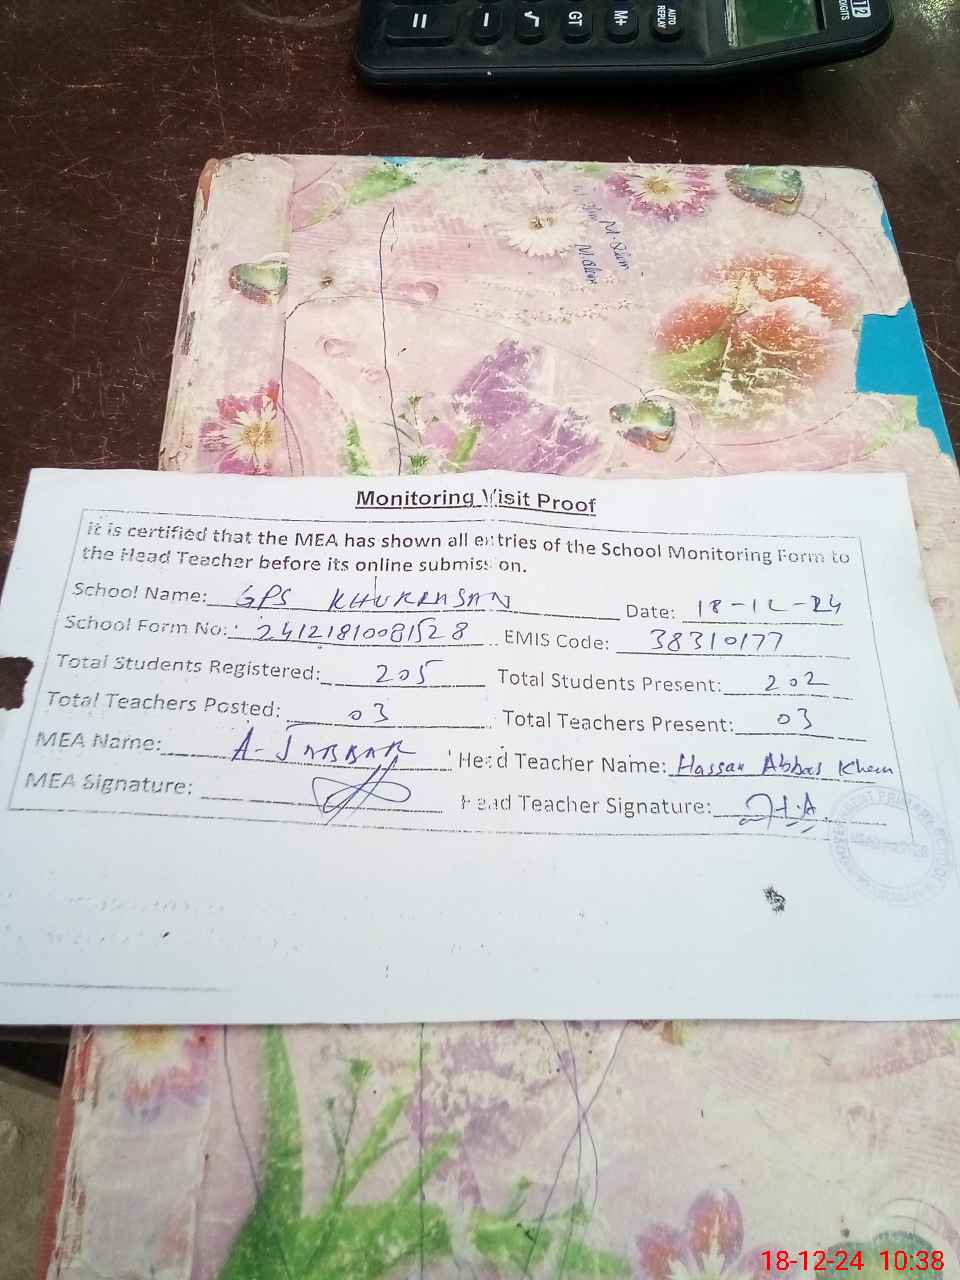 12
DIGITS
=
-
√
GT
M+
AUTO
REPLAY
Monitoring Visit Proof
it is certified that the MEA has shown all entries of the School Monitoring Form to
the Head Teacher before its online submission.
School Name: GPS KHURRASAN Date: 18-12-24
School Form No: 24121810081528 EMIS Code: 38310177
Total Students Registered: 205 Total Students Present: 202
Total Teachers Posted: 03 Total Teachers Present: 03
MEA Name: A-JABBAR Head Teacher Name: Hassan Abbas Khan
MEA Signature: Head Teacher Signature: H.A
18-12-24 10:38